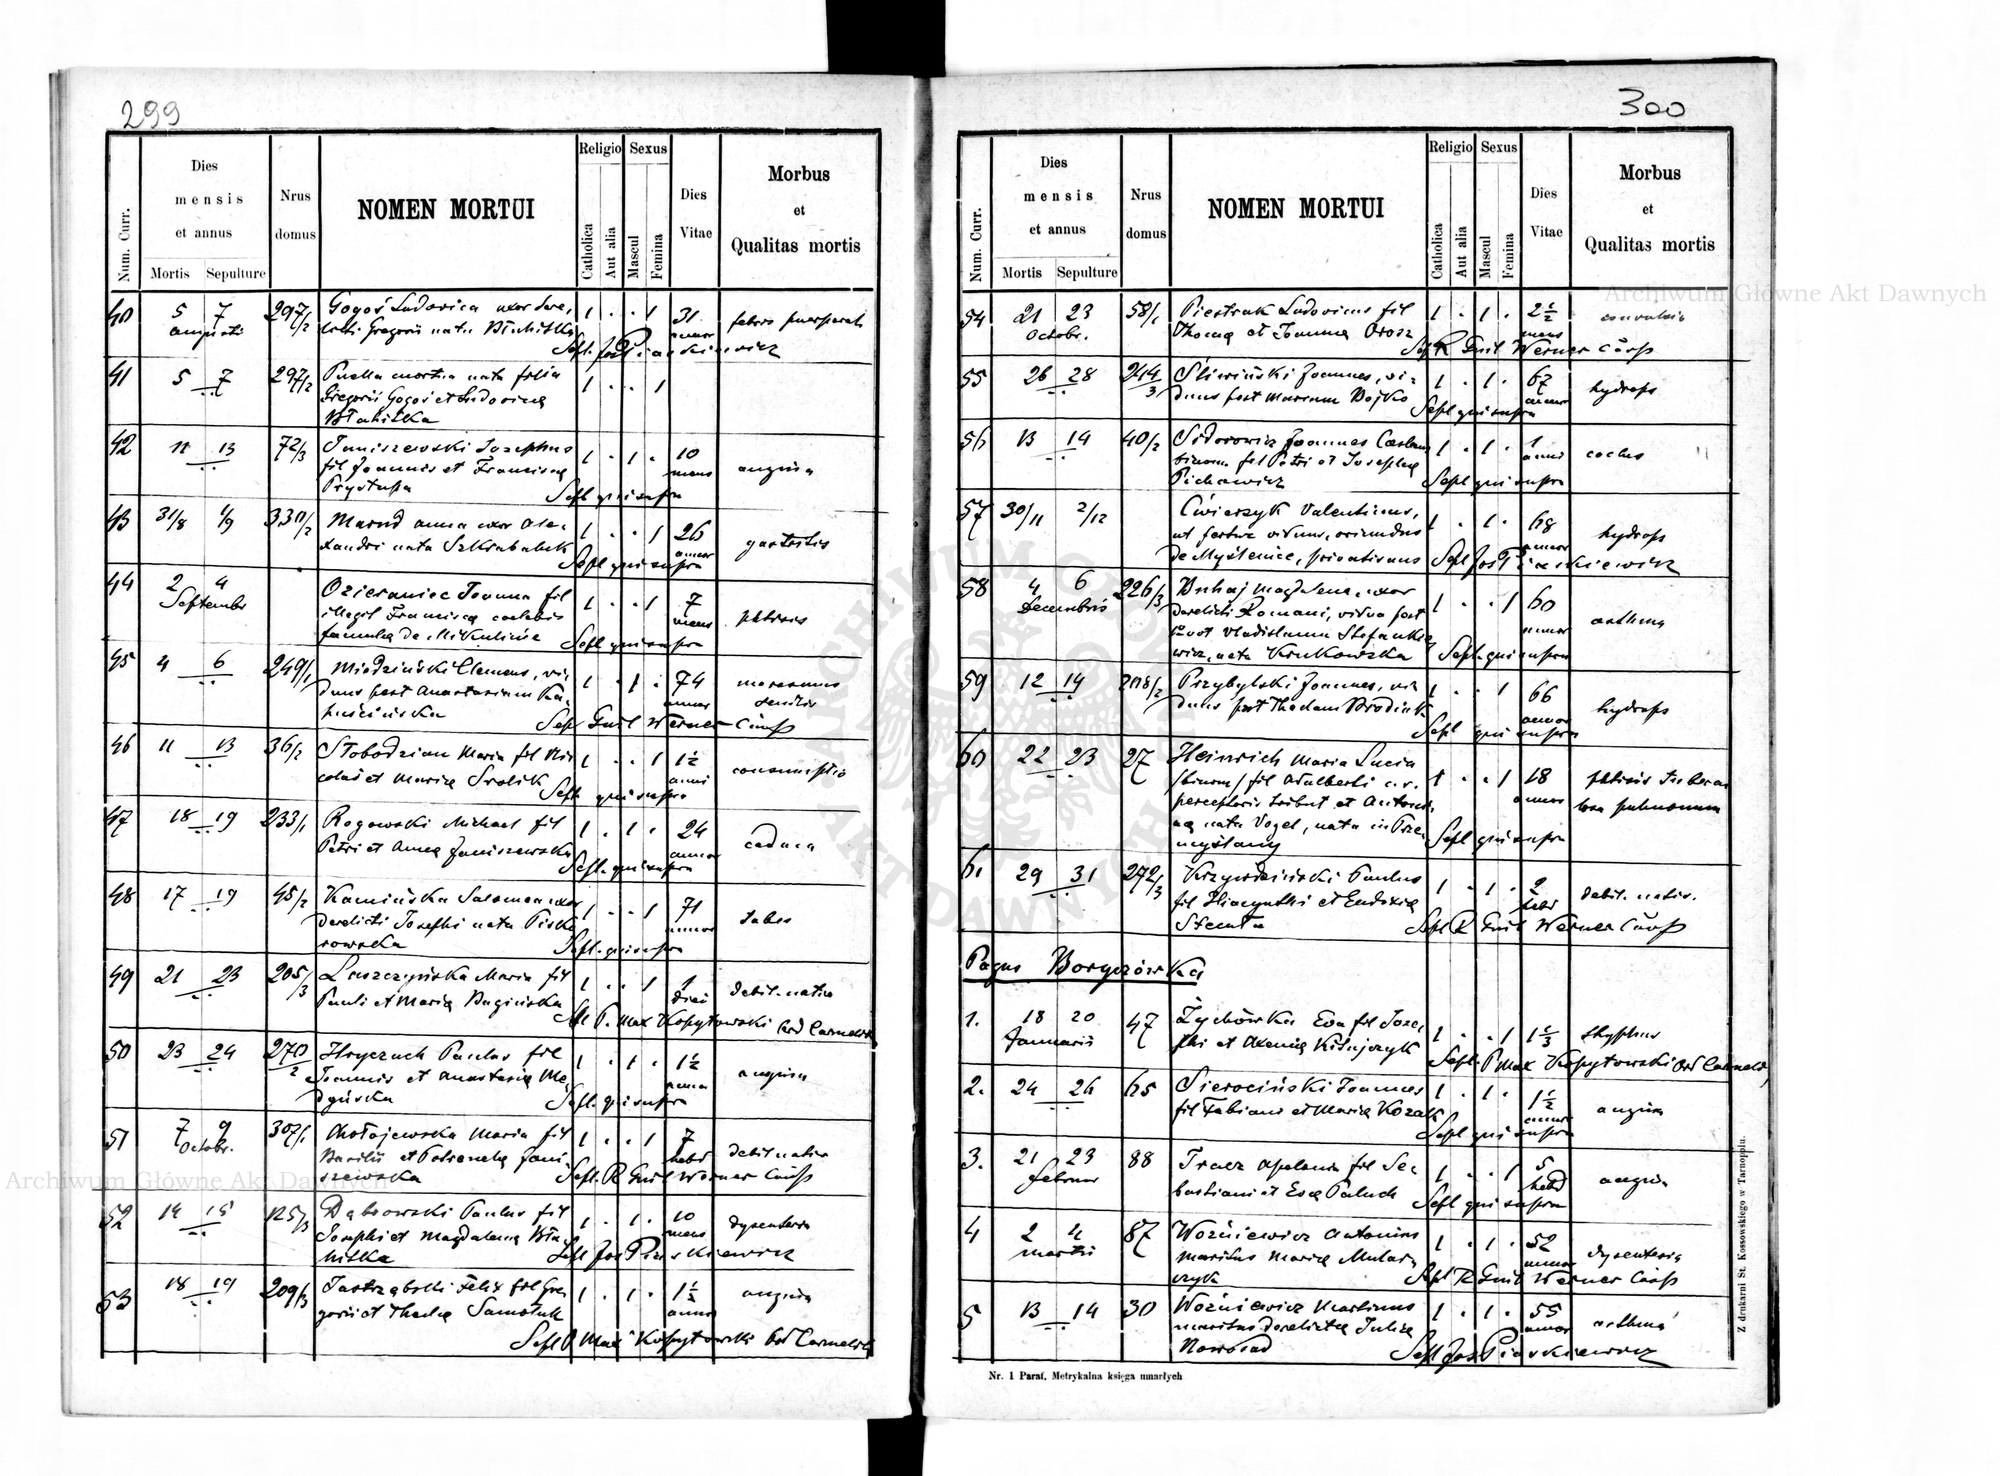 299
Num. Curr.
Dies
mensis
et annus
Mortis Sepulture
Nrus
domus
NOMEN MORTUI
Religio
Catholica
Aut alia
Sexus
Mascul
Femina
Dies
Vitae
Morbus
et
Qualitas mortis
40 5 7 297/2 Gogoś Ludovica uxor dere- 1 . . 1 31 febris puerperal
augusti licti Gregorii nata Błahitka annor
Sepl. Jos Piaskiewicz
41 5 7 297/2 Puella mortua nata filia 1 . . 1
Gregorii Gogoś et Ludovicæ
Błahitka
42 11 13 72/3 Janiszewski Josephus 1 . 1 . 10 angina
fil Joannis et Franciscæ mens
Prystupa Sepl qui supra
43 31/8 1/9 330/2 Anna uxor Ale- 1 . . 1 26 gastritis
xandri nata annor
Sepl qui supra
44 2 4 Joanna fil 1 . . 1 7 phtisis
Septembr illegit Franciscæ cœlebis mens
famulæ de Mikulińce Sepl qui supra
45 4 6 249/1 Miodziński Clemens, vi- 1 . 1 . 74 marasmus
duus post Anastasiam Ka- annor senilis
puścińska Sepl Guil Werner Coop
46 11 13 36/2 Słobodzian Maria fil Ni- 1 . . 1 1½ consumptio
colai et Mariæ Srolik anni
Sepl. qui supra
47 18 19 233/1 Rogowski Michael fil 1 . 1 . 24 caduca
Petri et Annæ Janiszewska annor
Sepl. qui supra
48 17 19 45/2 Kamińska Salomea uxor 1 . . 1 71 tabes
derelicti Josephi nata Pisko- annor
rowska Sepl. qui supra
49 21 23 205/3 Leszczyńska Maria fil 1 . . 1 1 debil. nativa
Pauli et Mariæ Bagińska diei
Sepl P. Max Kopytowski Ord Carmelit
50 23 24 270/2 Hryczuch Paulus fil 1 . 1 . 1½ angina
Joannis et Anastasiæ Me-
dyńska Sepl. qui supra
51 7 9 307/1 Chołojewska Maria fil 1 . . 1 7 debil nativa
Octobr. Basilii et Petronelæ Jani- hebd
szewska Sepl. R Guil Werner Coop
52 14 15 125/3 Dąbrowski Paulus fil 1 . 1 . 10 dysenteria
Josephi et Magdalenæ Bła- mens
hitka Sepl Jos Piaskiewicz
53 18 19 209/3 Jastrząbski Felix fil Gre- 1 . 1 . 1½ angina
gorii et Theclæ Samoluk annor
Sepl P Max Kopytowski Ord Carmelit
300
Num. Curr.
Dies
mensis
et annus
Mortis Sepulture
Nrus
domus
NOMEN MORTUI
Religio
Catholica
Aut alia
Sexus
Mascul
Femina
Dies
Vitae
Morbus
et
Qualitas mortis
54 21 23 58/1 Piestrak Ludovicus fil 1 . 1 . 2½ convulsio
Octobr. Thomæ et Joannæ Orosz mens
Sepl R Guil Werner Coop
55 26 28 244/3 Śliwiński Joannes, vi- 1 . 1 . 67 hydrops
duus post Mariam Bojko annor
Sepl qui supra
56 13 14 40/2 Sidorowicz Joannes Cantius 1 . 1 . 1
binom. fil Petri et Josephæ anni
Pichowicz Sepl qui supra
57 30/11 2/12 Ćwierzyk Valentinus, 1 . 1 . 68 hydrops
ut fertur viduus, oriundus annor
de Myślenice, privatisans Sepl Jos Piaskiewicz
58 4 6 226/3 Buhaj Magdalena, uxor 1 . . 1 60 asthma
Decembris derelicti Romani, vidua post annor
Vladislaum Stefanko-
wicz, nata Krukowska Sepl. qui supra
59 12 14 208/2 Przybylski Joannes, vi- 1 . . 1 66 hydrops
duus post Theclam Brodiuk annor
Sepl qui supra
60 22 23 27 Heinrich Maria Lucia 1 . . 1 18 phtisis tubercu
/binom/ fil Adalberti c. r. annor losa pulmonum
perceptoris tribut et Antoni-
næ nata Vogel, nata in Prze-
myślany Sepl qui supra
61 29 31 272/3 Krzywdziński Paulus 1 . 1 . 2 debil. nativ.
fil Hiacynthi et Eudoxiæ hebd
Stecuta Sepl R Guil Werner Coop
Pagus Boryczówka
1. 18 20 47 Żychówka Eva fil Jose- 1 . . 1 1 1/3 thyphus
Januarii phi et Axeniæ
Sepl. P Max Kopytowski Ord Carmelit
2. 24 26 65 Sierociński Joannes 1 . 1 . 1½ angina
fil Fabiani et Mariæ Kozak annor
Sepl qui supra
3. 21 23 88 Tracz Apolonia fil Se- 1 . . 1 5 angina
Februar bastiani et Evæ Paluch hebd
Sepl qui supra
4 2 4 87 Woźniewicz Antonius 1 . 1 . 52 dysenteria
Martii maritus Mariæ Mular- annor
czyk Sepl R Guil Werner Coop
5 13 14 30 Woźniewicz Martinus 1 . 1 . 55 asthma
maritus derelictæ Juliæ annor
Nowosad Sepl Jos Piaskiewicz
Nr. 1 Paraf. Metrykalna księga umarłych
Z drukarni St. Kossowskiego w Tarnopolu.
Archiwum Główne Akt Dawnych
Archiwum Główne Akt Dawnych
ARCHIWUM GŁÓWNE AKT DAWNYCH